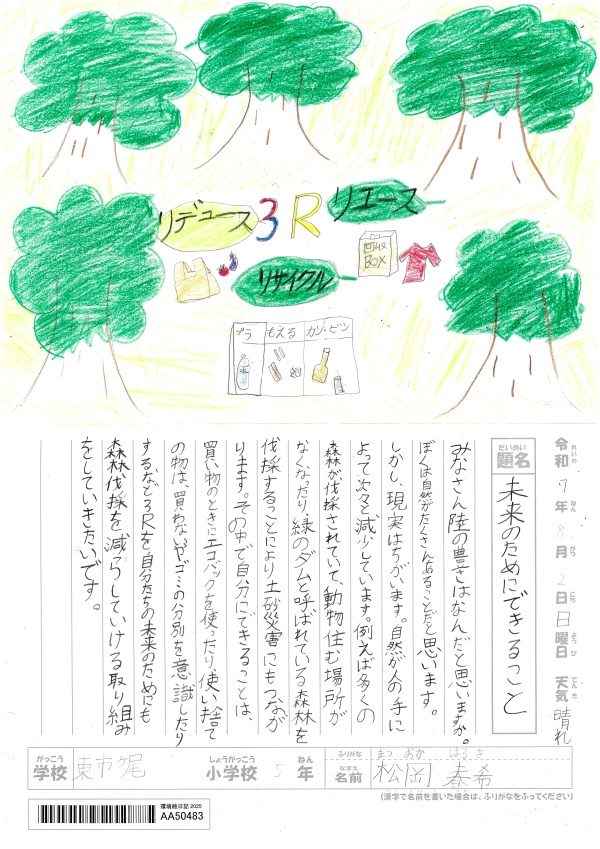 リデュース 3R リユース
回収
BOX
リサイクル
プラ もえる カン・ビン
令和7年8月2日日曜日 天気 晴れ
れいわ ねん がつ にち ようび てんき
だいめい
題名
未来のためにできること
みなさん陸の豊さはなんだと思いますか。
ぼくは自然がたくさんあることだと思います。
しかし、現実はちがいます。自然が人の手に
よって次々と減少しています。例えば多くの
森林が伐採されていて、動物住む場所が
なくなったり、緑のダムと呼ばれている森林を
伐採することにより土砂災害にもつなが
ります。その中で自分にできることは、
買い物のときにエコバックを使ったり使い捨て
の物は、買わない。ゴミの分別を意識したり
するなど3Rを自分たちの未来のためにも
森林伐採を減らしていける取り組み
をしていきたいです。
がっこう しょうがっこう ねん ふりがな まつおか はるき
学校 東市ケ尾 小学校 5年 なまえ 名前 松岡 春希
(漢字で名前を書いた場合は、ふりがなをふってください)
環境絵日記 2025
AA50483